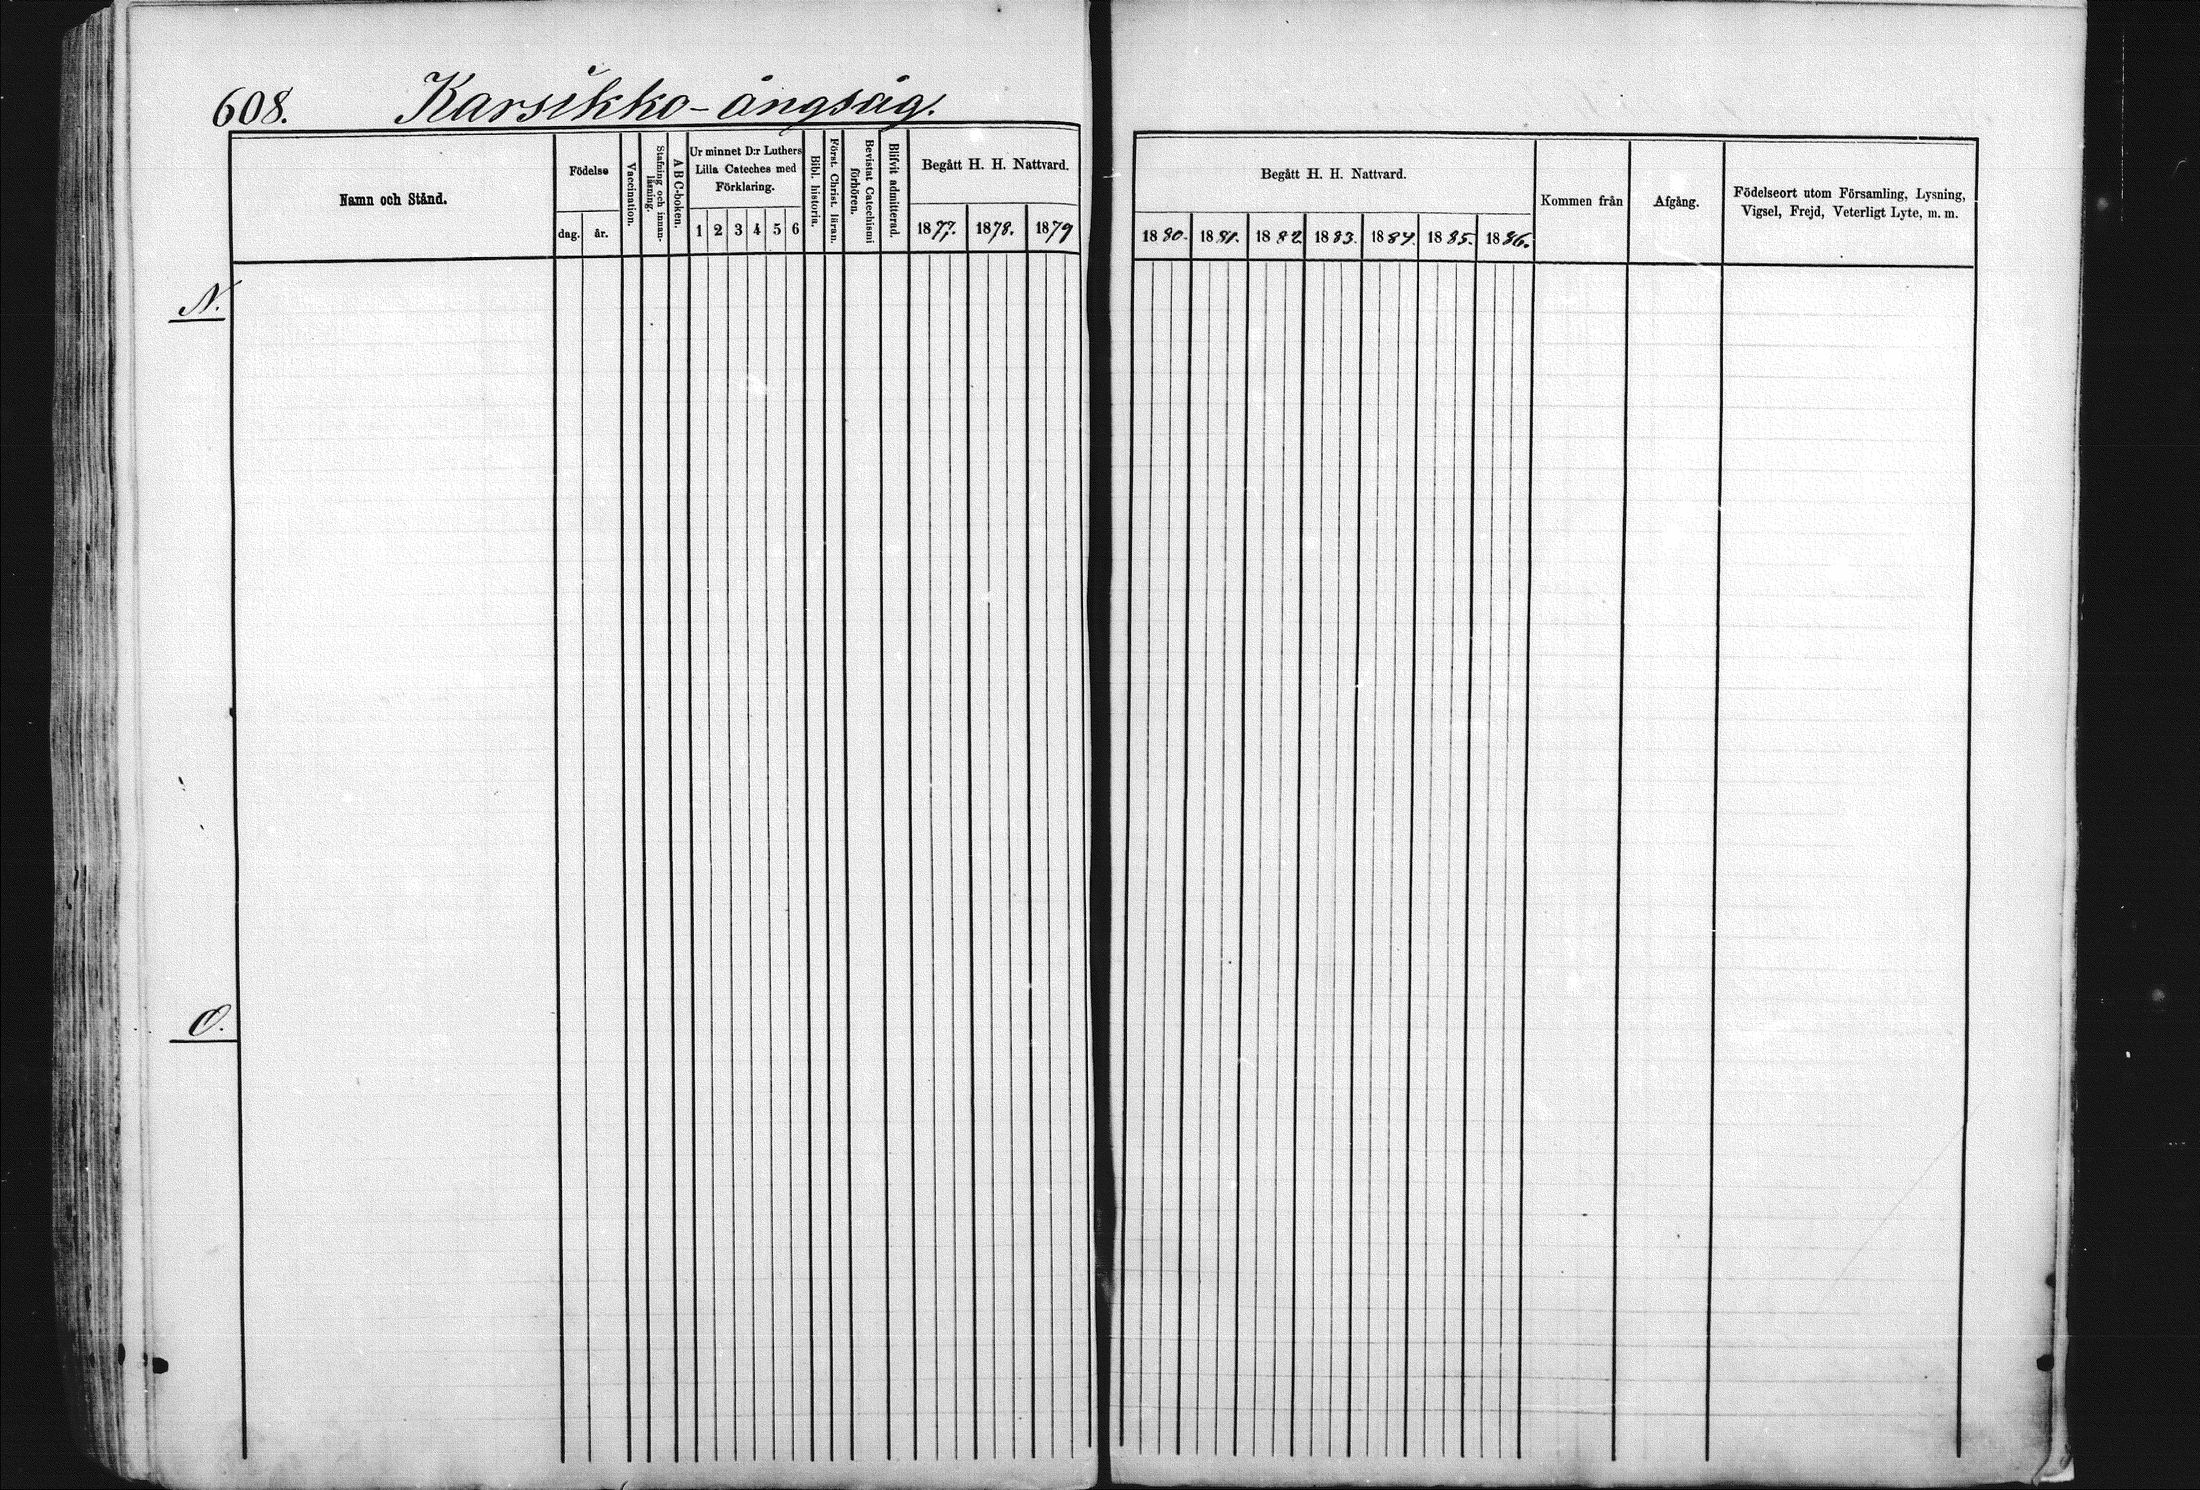 608. Karsikko-ångsåg.
Namn och Stånd.
Födelse
dag. år.
Vaccination.
Stafning och innan-
läsning.
A B C-boken.
Ur minnet D:r Luthers
Lilla Cateches med
Förklaring.
1 2 3 4 5 6
Bibl. historia.
Först. Christ. läran.
Bevistat Catechismi
förhören.
Blifvit admitterad.
Begått H. H. Nattvard.
1877. 1878. 1879
Begått H. H. Nattvard.
1880. 1881. 1882. 1883. 1884. 1885. 1886.
Kommen från
Afgång.
Födelseort utom Församling, Lysning,
Vigsel, Frejd, Veterligt Lyte, m. m.
N.
O.